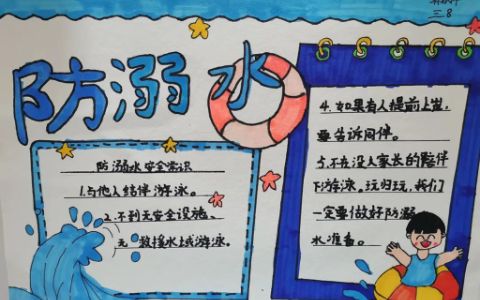 三8
防溺水
防溺水安全常识
1.与他人结伴游泳。
2.不到无安全设施、
无救援水域游泳。
4.如果有人提前上岸,
要告诉同伴。
5.不在没人家长的陪伴
下游泳。玩归玩,我们
一定要做好防溺
水准备。